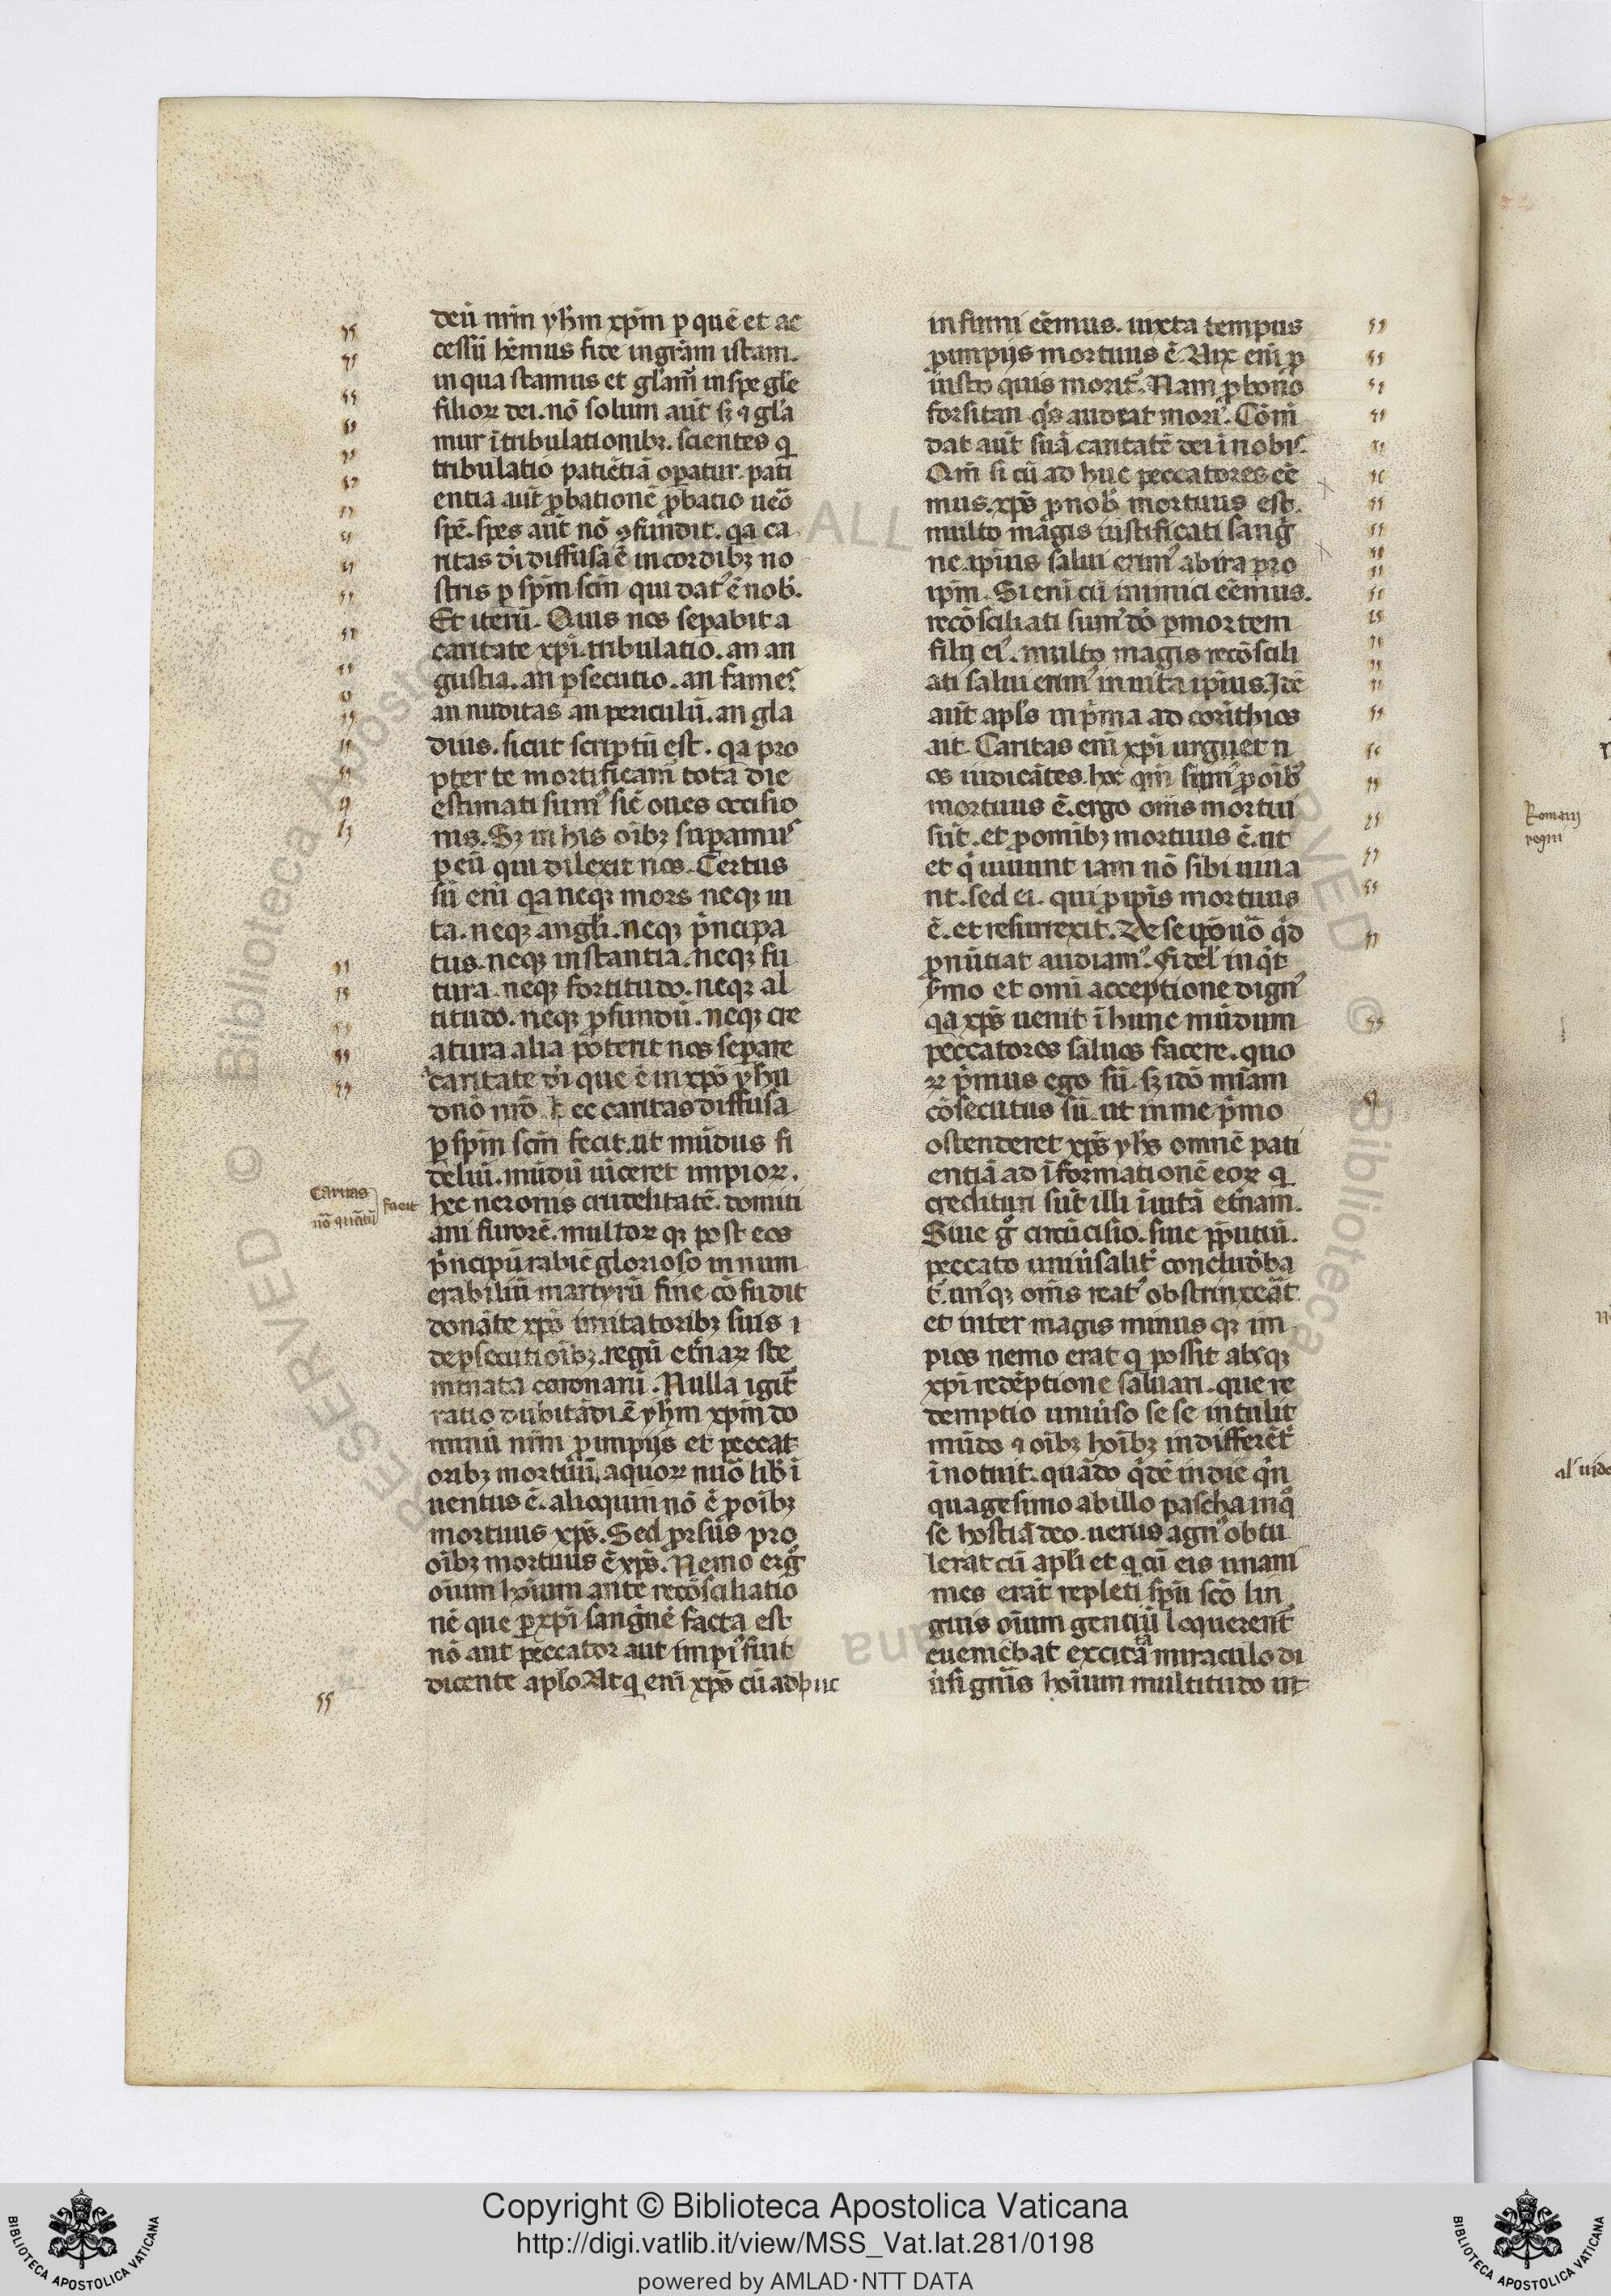 deū nr̄m yhm xp̄m p quē et ac
cessū hēmus fide in grām istam.
in qua stamus et glam̄ in spe glē
filior dei. nō solum aūt sꝫ ⁊ gla
mur ī tribulationibꝫ. scientes q̨
tribulatio patiētiā opatur. pati
entia aūt pbationē pbatio ueō
spē. spes aūt nō ꝯfundit. qa ca
ritas dī diffusa ē in cordibꝫ no
stris p spm̄ scm̄ qui dat᷒ ē nob̄.
Et iterū. Quis nos sepabit a
caritate xpī. tribulatio. an an
gustia. an psecutio. an fames
an nuditas an periculū. an gla
dius. sicut scriptū est. qa pro
pter te mortificam᷒ tota die
estimati sum᷒ sic̄ oues occisio
nis. Sꝫ in his oībꝫ supamus
p eū qui dilexit nos. Certus
sū enī qa neqꝫ mors neqꝫ ui
ta. neqꝫ angli. neqꝫ pncipa
tus. neqꝫ instantia. neqꝫ fu
tura. neqꝫ fortitudo. neqꝫ al
titudo. neqꝫ pfundū. neqꝫ cre
atura alia poterit nos separe
a caritate dī que ē in xpō yhu
dnō nrō. hec caritas diffusa
p spm̄ scm̄ fecit. ut mūdus fi
deliū. mūdū uīceret impior.
hec neronis crudelitatē. domiti
ani furorē. multor qꝫ post eos
pncipū rabiē glorioso innum
erabiliū martyrū fine cōfudit
donāte xpō imitatoribꝫ suis ⁊
de psecutioībꝫ. regū etnar ste
mmata coronarū. Nulla igit᷒
ratio dubitādi ē yhm xpm̄ do
minū nr̄m p impiis et peccat
oribꝫ mortuū, a quor nūo lib̄ ī
uentus ē. alioquin nō ē p oībꝫ
mortuus xps̄. Sed prsus pro
oībꝫ mortuus ē xps̄. Nemo ergo
oīum hoīum ante recōsciliatio
nē que p xpī sanguinē facta est
nō aut peccator aut impi᷒ fuit
dicente aplo. At q̨ enī xps̄ cū adhuc
infirmi eēmus. iuxta tempus
p impiis mortuus ē. Uix enī p
iusto quis morit᷒. Nam p bono
forsitan qs audeat mori. Cōm̄
dat aūt suā caritatē dei ī nobis.
Qm̄ si cū ad huc peccatores eē
mus. xps̄ p nob̄ mortuus est.
multo magis iustificati sang̃
ne ipius salui erim᷒ ab ira pro
ipm̄. Si enī cū inimici eēmus.
recōsciliati sum᷒ dō p mortem
filii ei᷒. multo magis recōscili
ati salui erim᷒ in uita ipius. Idē
aūt apls in pma ad corīthios
ait. Caritas enī xpī urguet n
os iudicātes. hoc qm̄ si un᷒ p oib᷒
mortuus ē. ergo om̄s mortui
sūt. et p omībꝫ mortuus ē. ut
et q̄ uiuunt iam nō sibi uiua
nt. sed ei. qui p ipis mortuus
ē. et resurrexit. De se ipō uō qd
pnūtiat audiam᷒. fidel inqt
smo et omī acceptione dign᷒
qa xps̄ uenit ī hunc mūdum
peccatores saluos facere. quo
r pmus ego sū. sꝫ idō mīam
cōsecutus sū. ut in me pmo
ostenderet xps̄ yhs omnē pati
entiā ad īformationē eor q̨
credituri sūt illi ī uitā etnam.
Siue g̊ circūcisio. siue pputiū.
peccato uniūsalit᷒ concludeba
t᷒. un᷒qꝫ om̄s reat᷒ obstrinxeāt
et inter magis minus qꝫ im
pios nemo erat q̨ possit absqꝫ
xpī redēptione saluari. que re
demptio uniūso se se intulit
mūdo ⁊ oībꝫ hoībꝫ indifferēt᷒
īnotuit. quādo qdē in die qn
quagesimo ab illo pascha in q̊
se hostiā deo. uerus agn᷒ obtu
lerat cū apli et q̨ cū eis unani
mes erāt repleti spū scō lin
guis oīum gentiū loquerent᷒
eueniebat excitata miraculo di
ūsi gnīs hoīum multitudo ut
Caritas
nō quātū facit
Romani
regni
al' uide
Copyright © Biblioteca Apostolica Vaticana
http://digi.vatlib.it/view/MSS_Vat.lat.281/0198
powered by AMLAD·NTT DATA
BIBLIOTECA APOSTOLICA VATICANA
BIBLIOTECA APOSTOLICA VATICANA